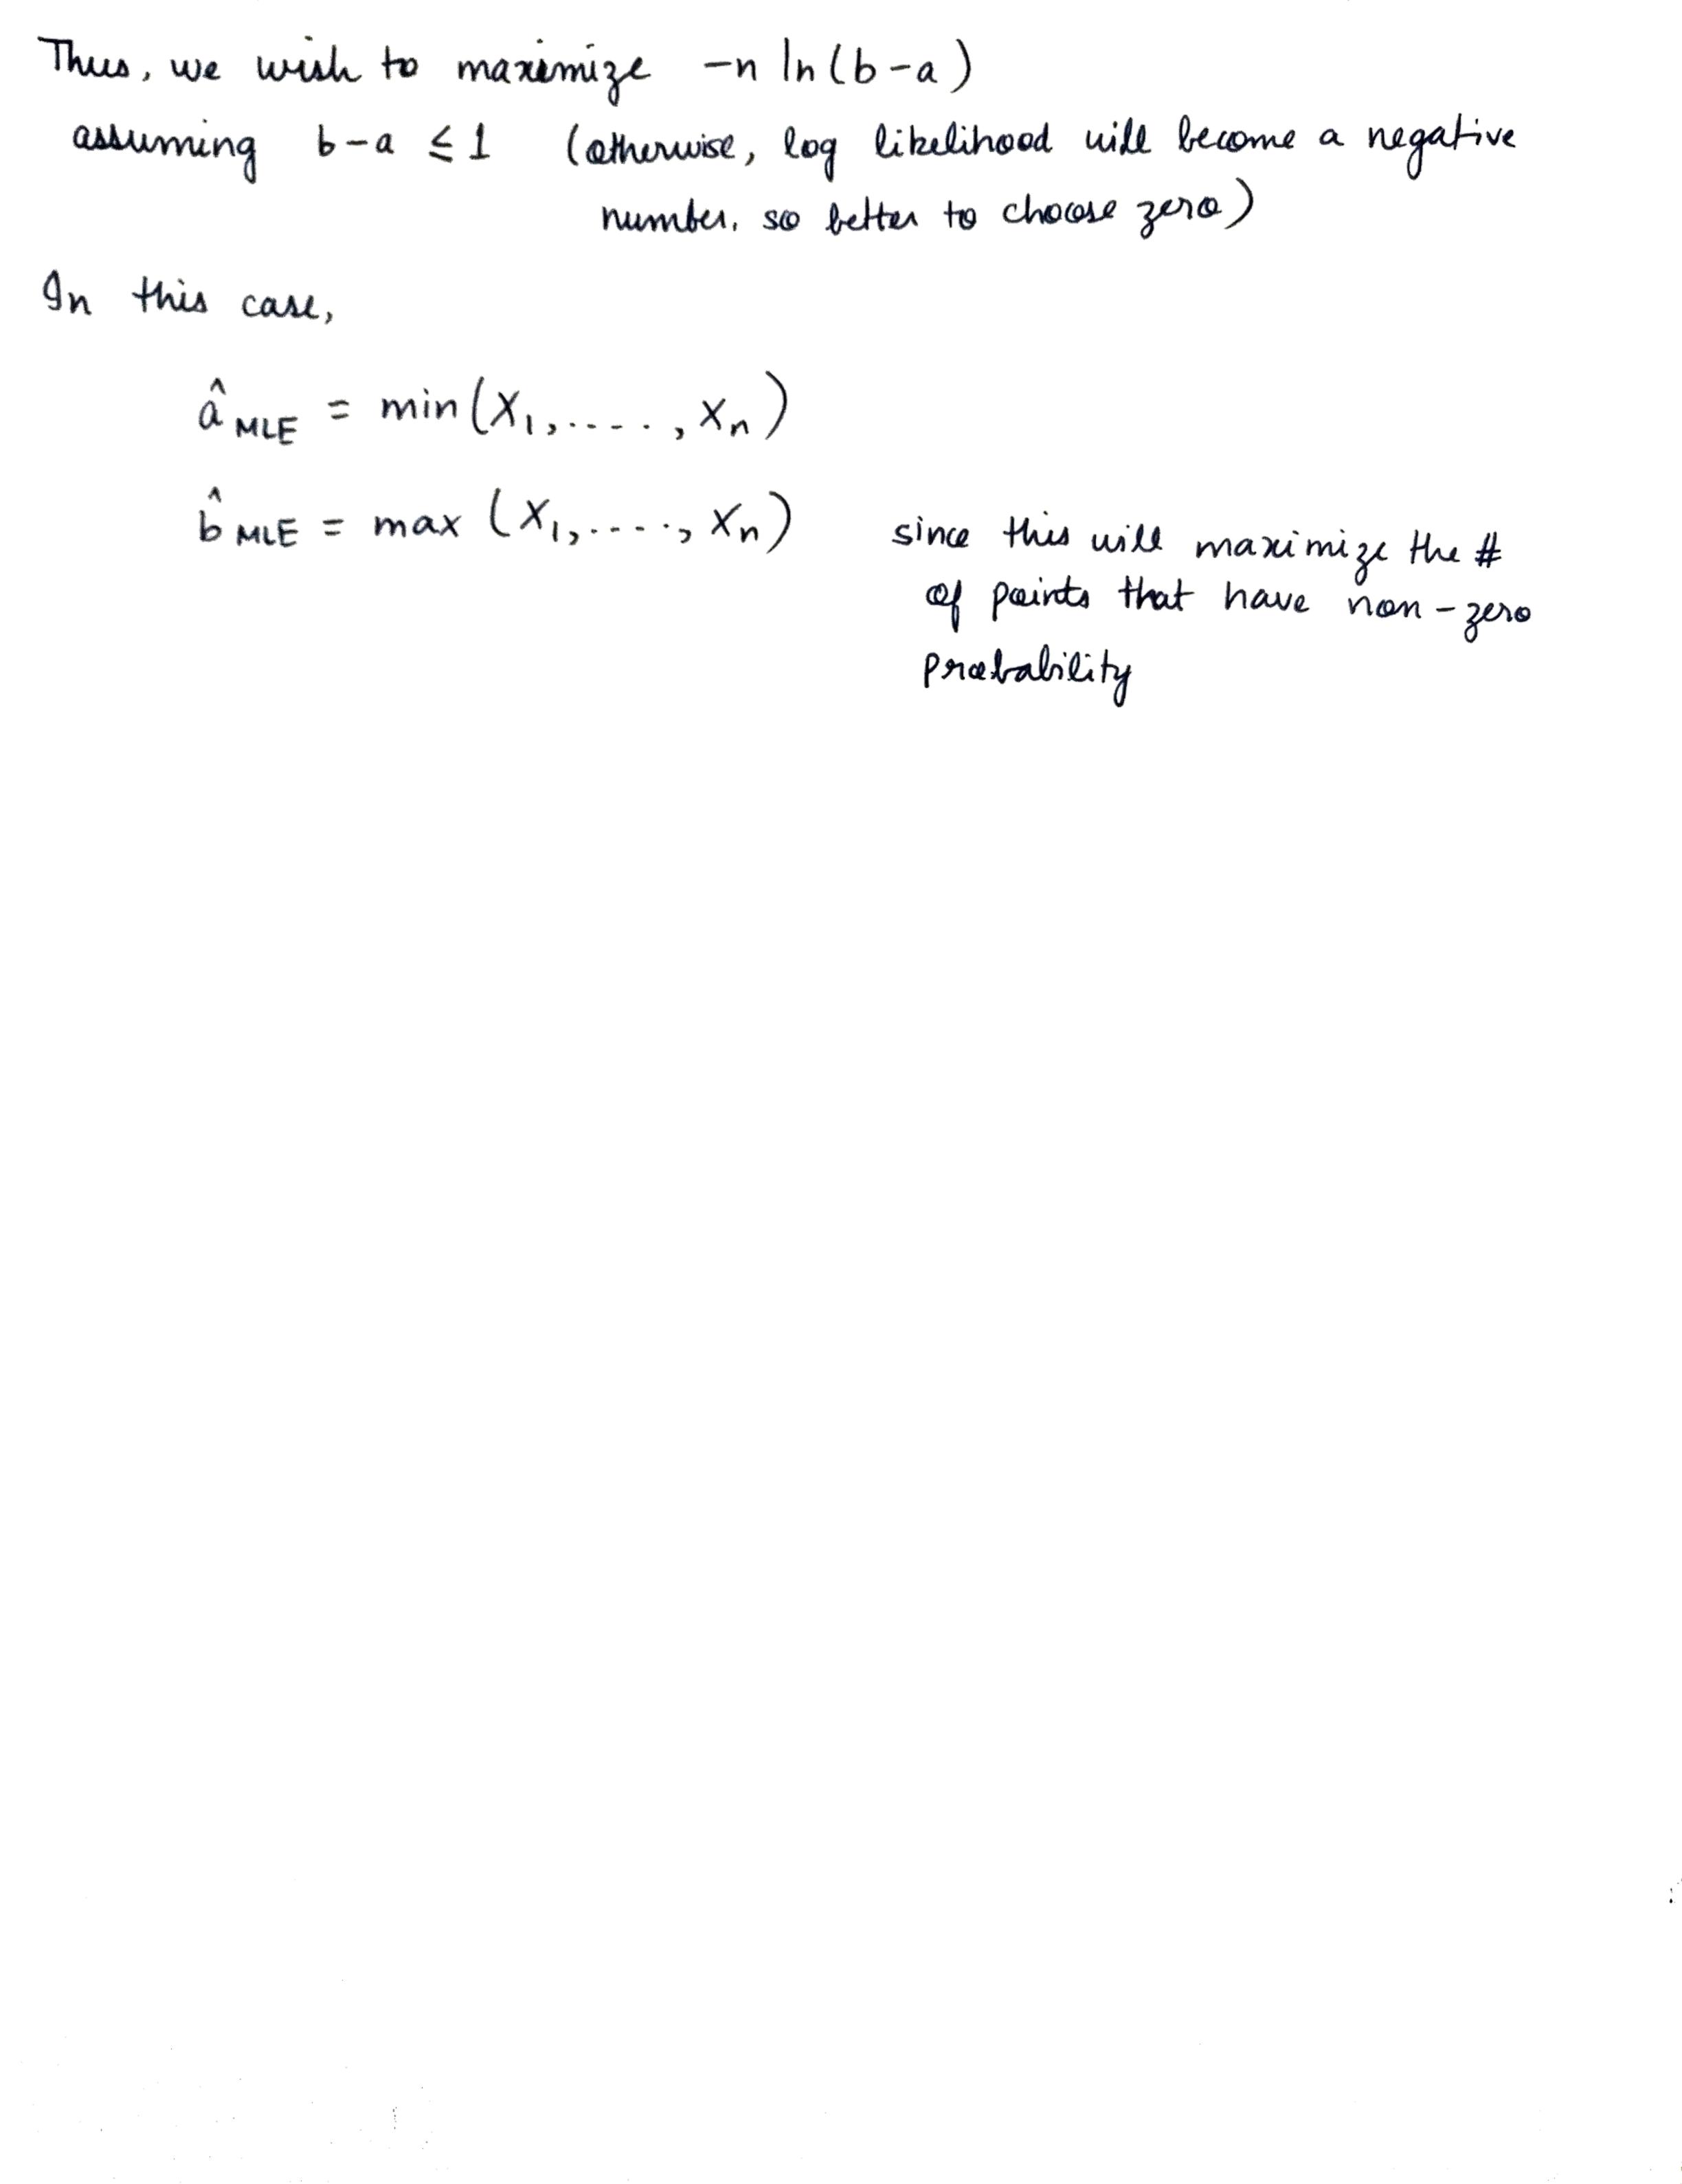 Thus, we wish to maximize -n ln(b-a)
assuming b-a ≤ 1 (otherwise, log likelihood will become a negative
number, so better to choose zero)
In this case,
â MLE = min(X₁,....., Xₙ)
b̂ MLE = max (X₁,....., Xₙ) since this will maximize the #
of points that have non-zero
probability